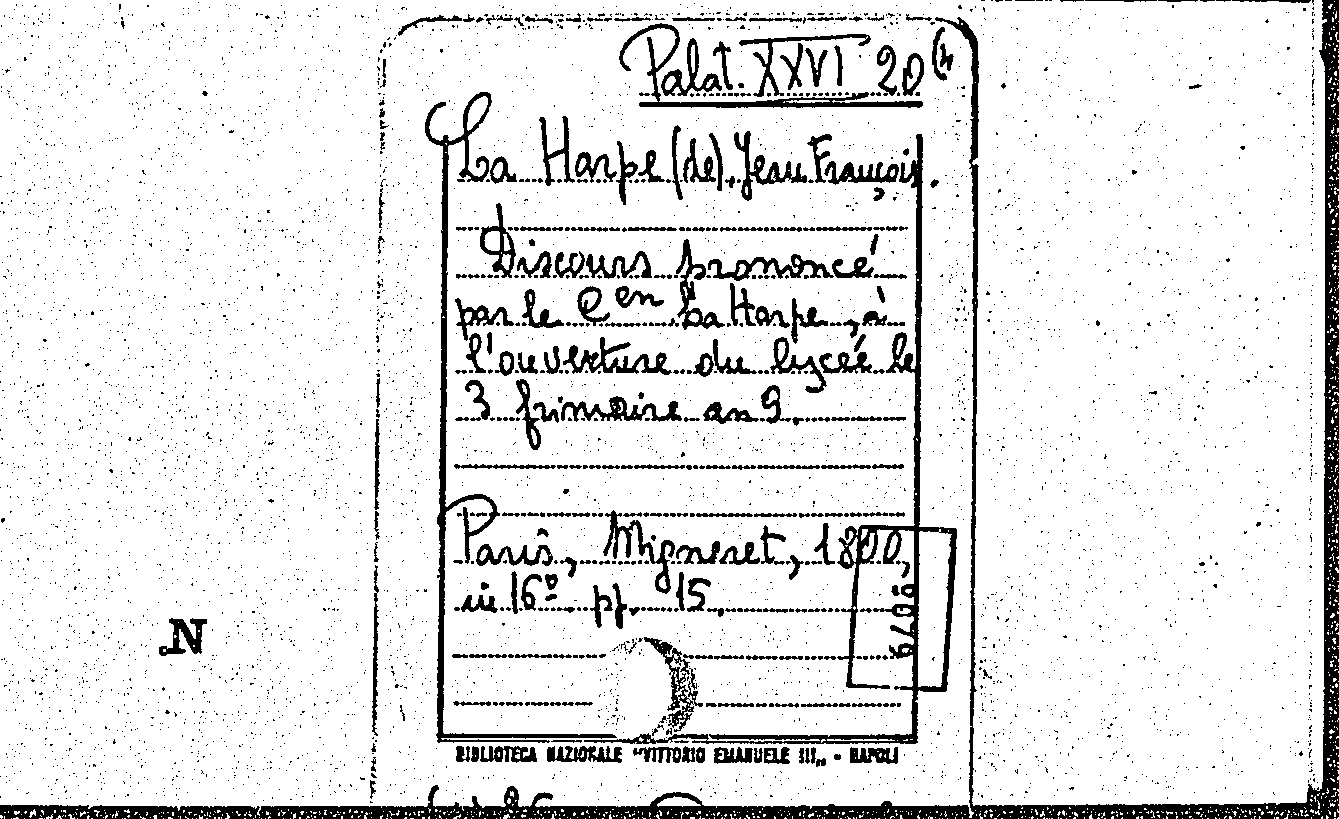 Palat. XXVI 20 (4
La Harpe (de), Jean François.
Discours prononcé
par le Cen La Harpe, à
l'ouverture du lyceé le
3 frimaire an 9.
Paris, Migneret, 1800,
in 16º. pp. 15.
N
BIBLIOTECA NAZIONALE "VITTORIO EMANUELE III„ - NAPOLI